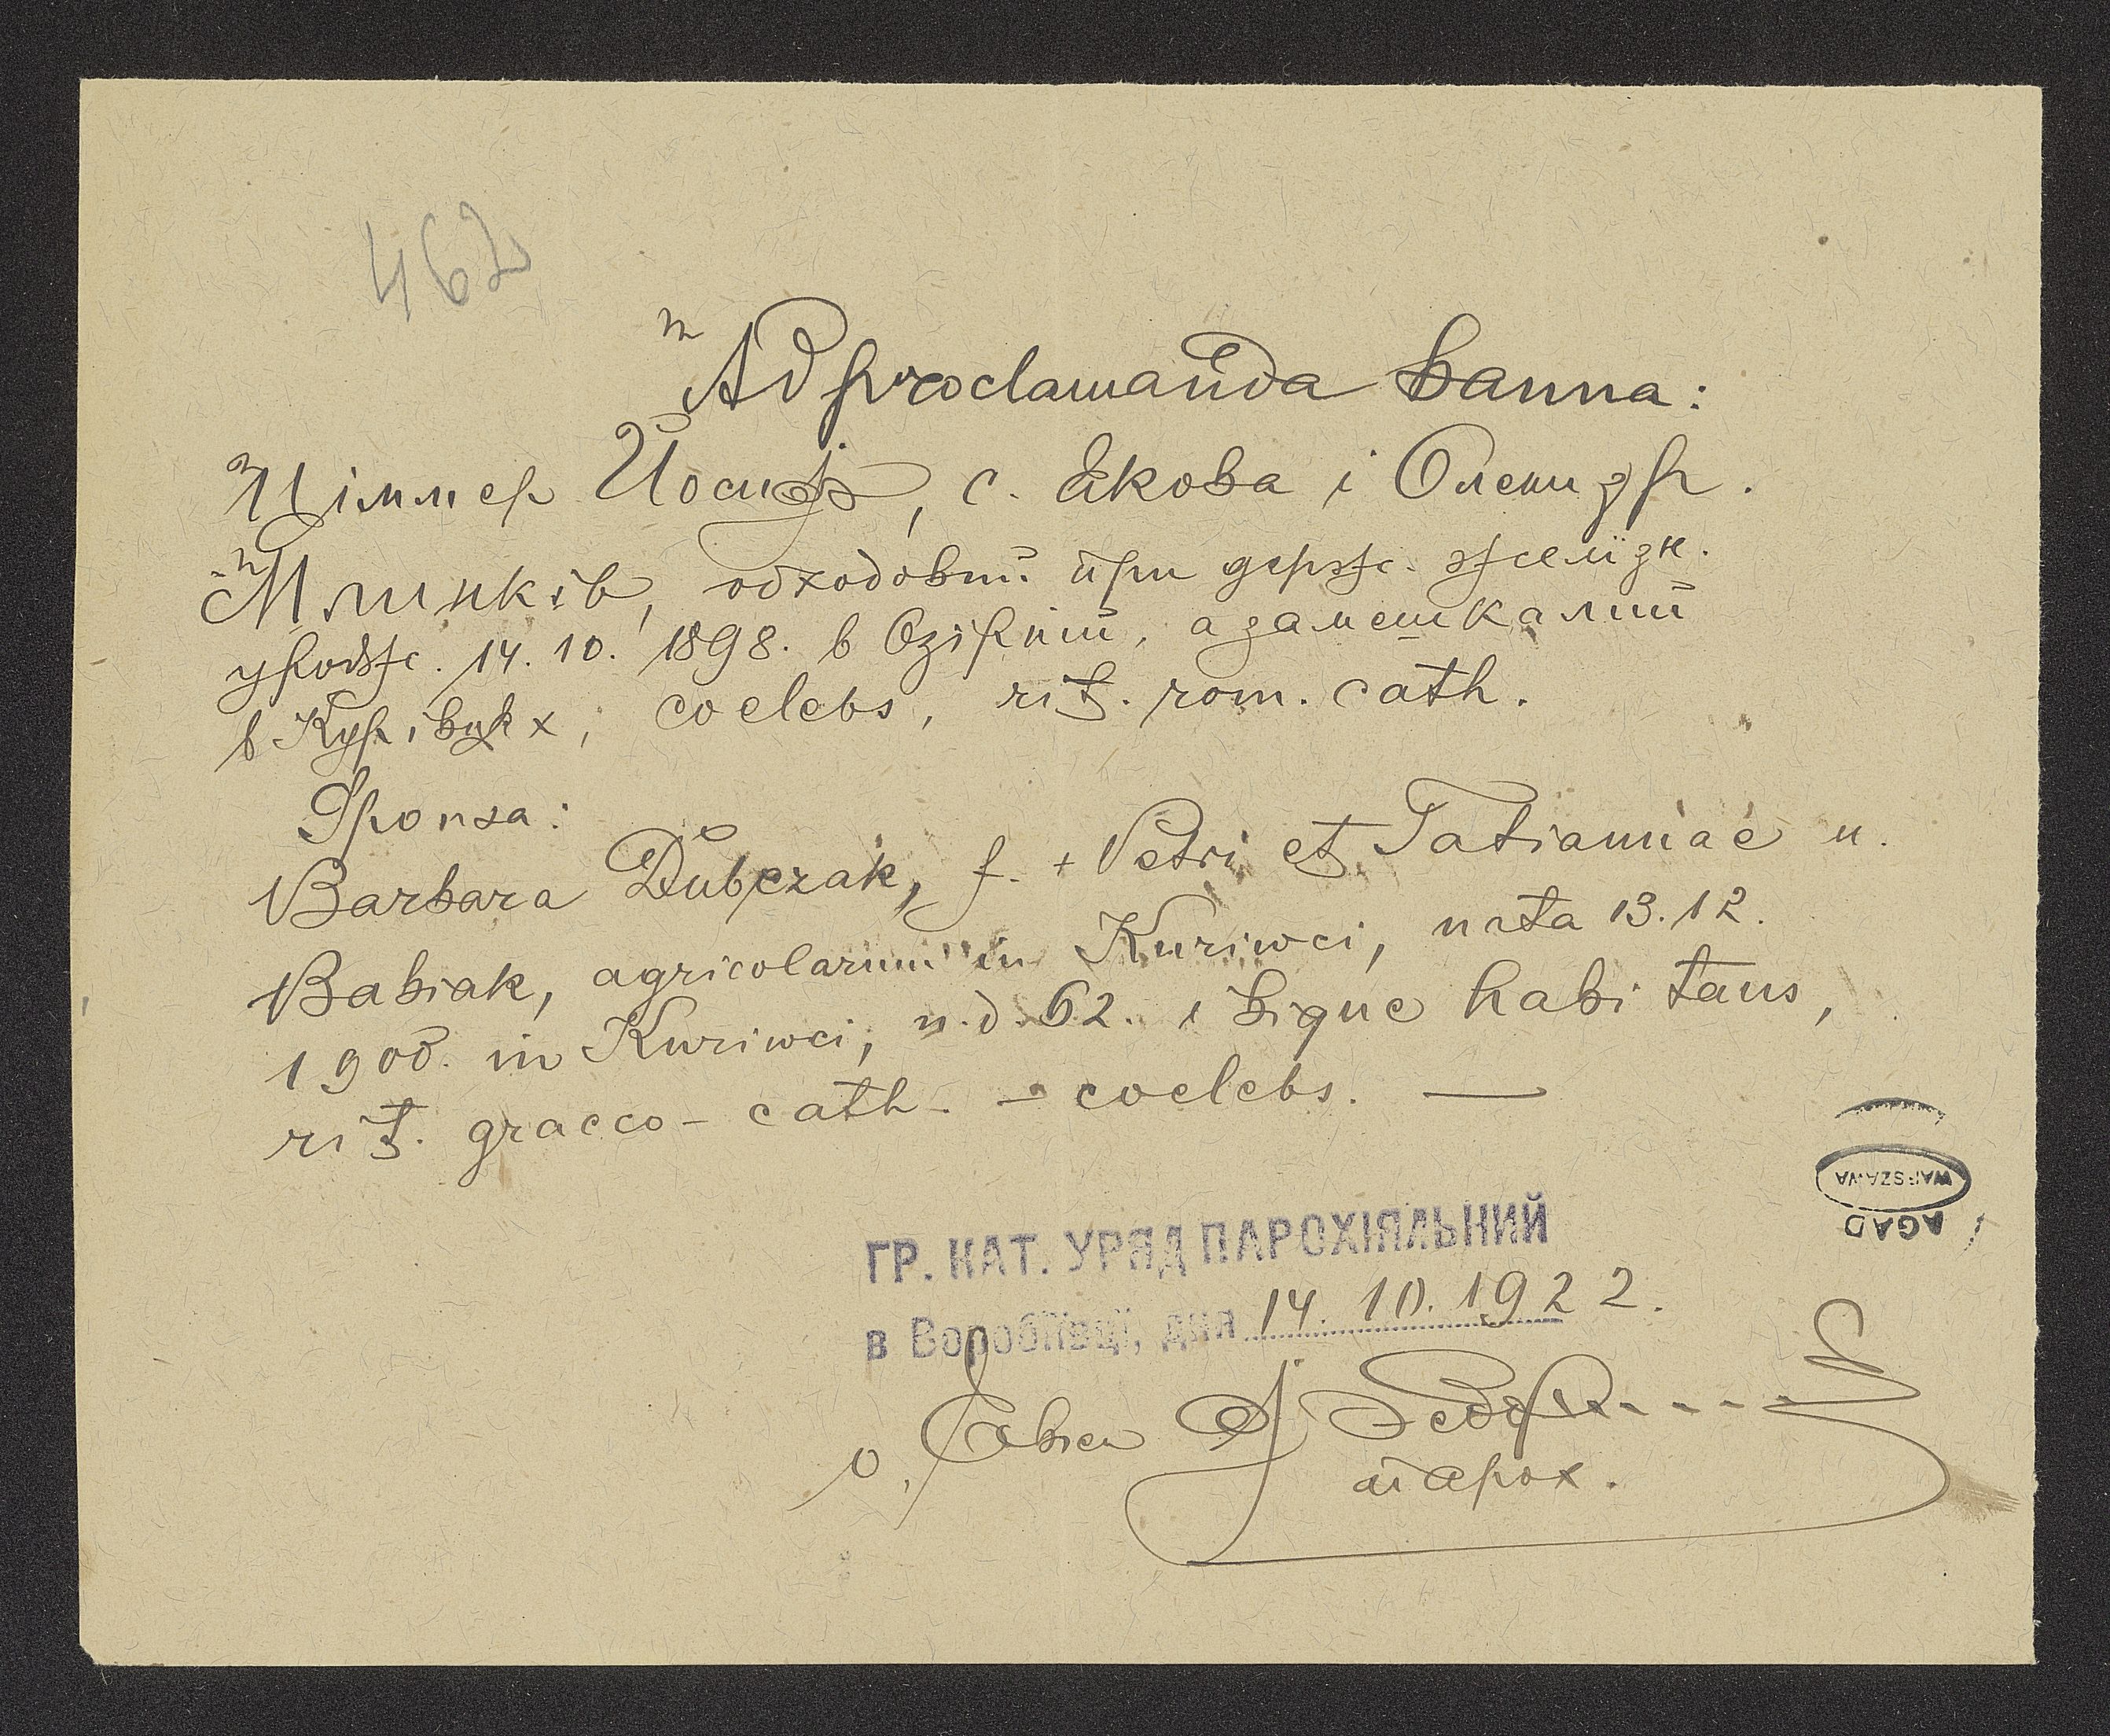 462
Ad proclamanda banna:
Ціммер Йосиф, с. Якова і Олекндр.
Млинків, обходовий при держ. желїзн.
уродж. 14. 10. 1898. в Озірній, а замешкалий
в Курівцях; coelebs, rit. rom. cath.
Sponsa:
Barbara Dubczak, f. + Petri et Tatiannae n.
Babiak, agricolarum in Kuriwci, nata 13. 12.
1900. in Kuriwci, n. d. 62. ibique habitans,
rit. graeco-cath. - coelebs. —
ГР. КАТ. УРЯД ПАРОХІЯЛЬНИЙ
в Воробіївці, дня 14. 10. 1922.
о.
парох.
AGAD
WARSZAWA